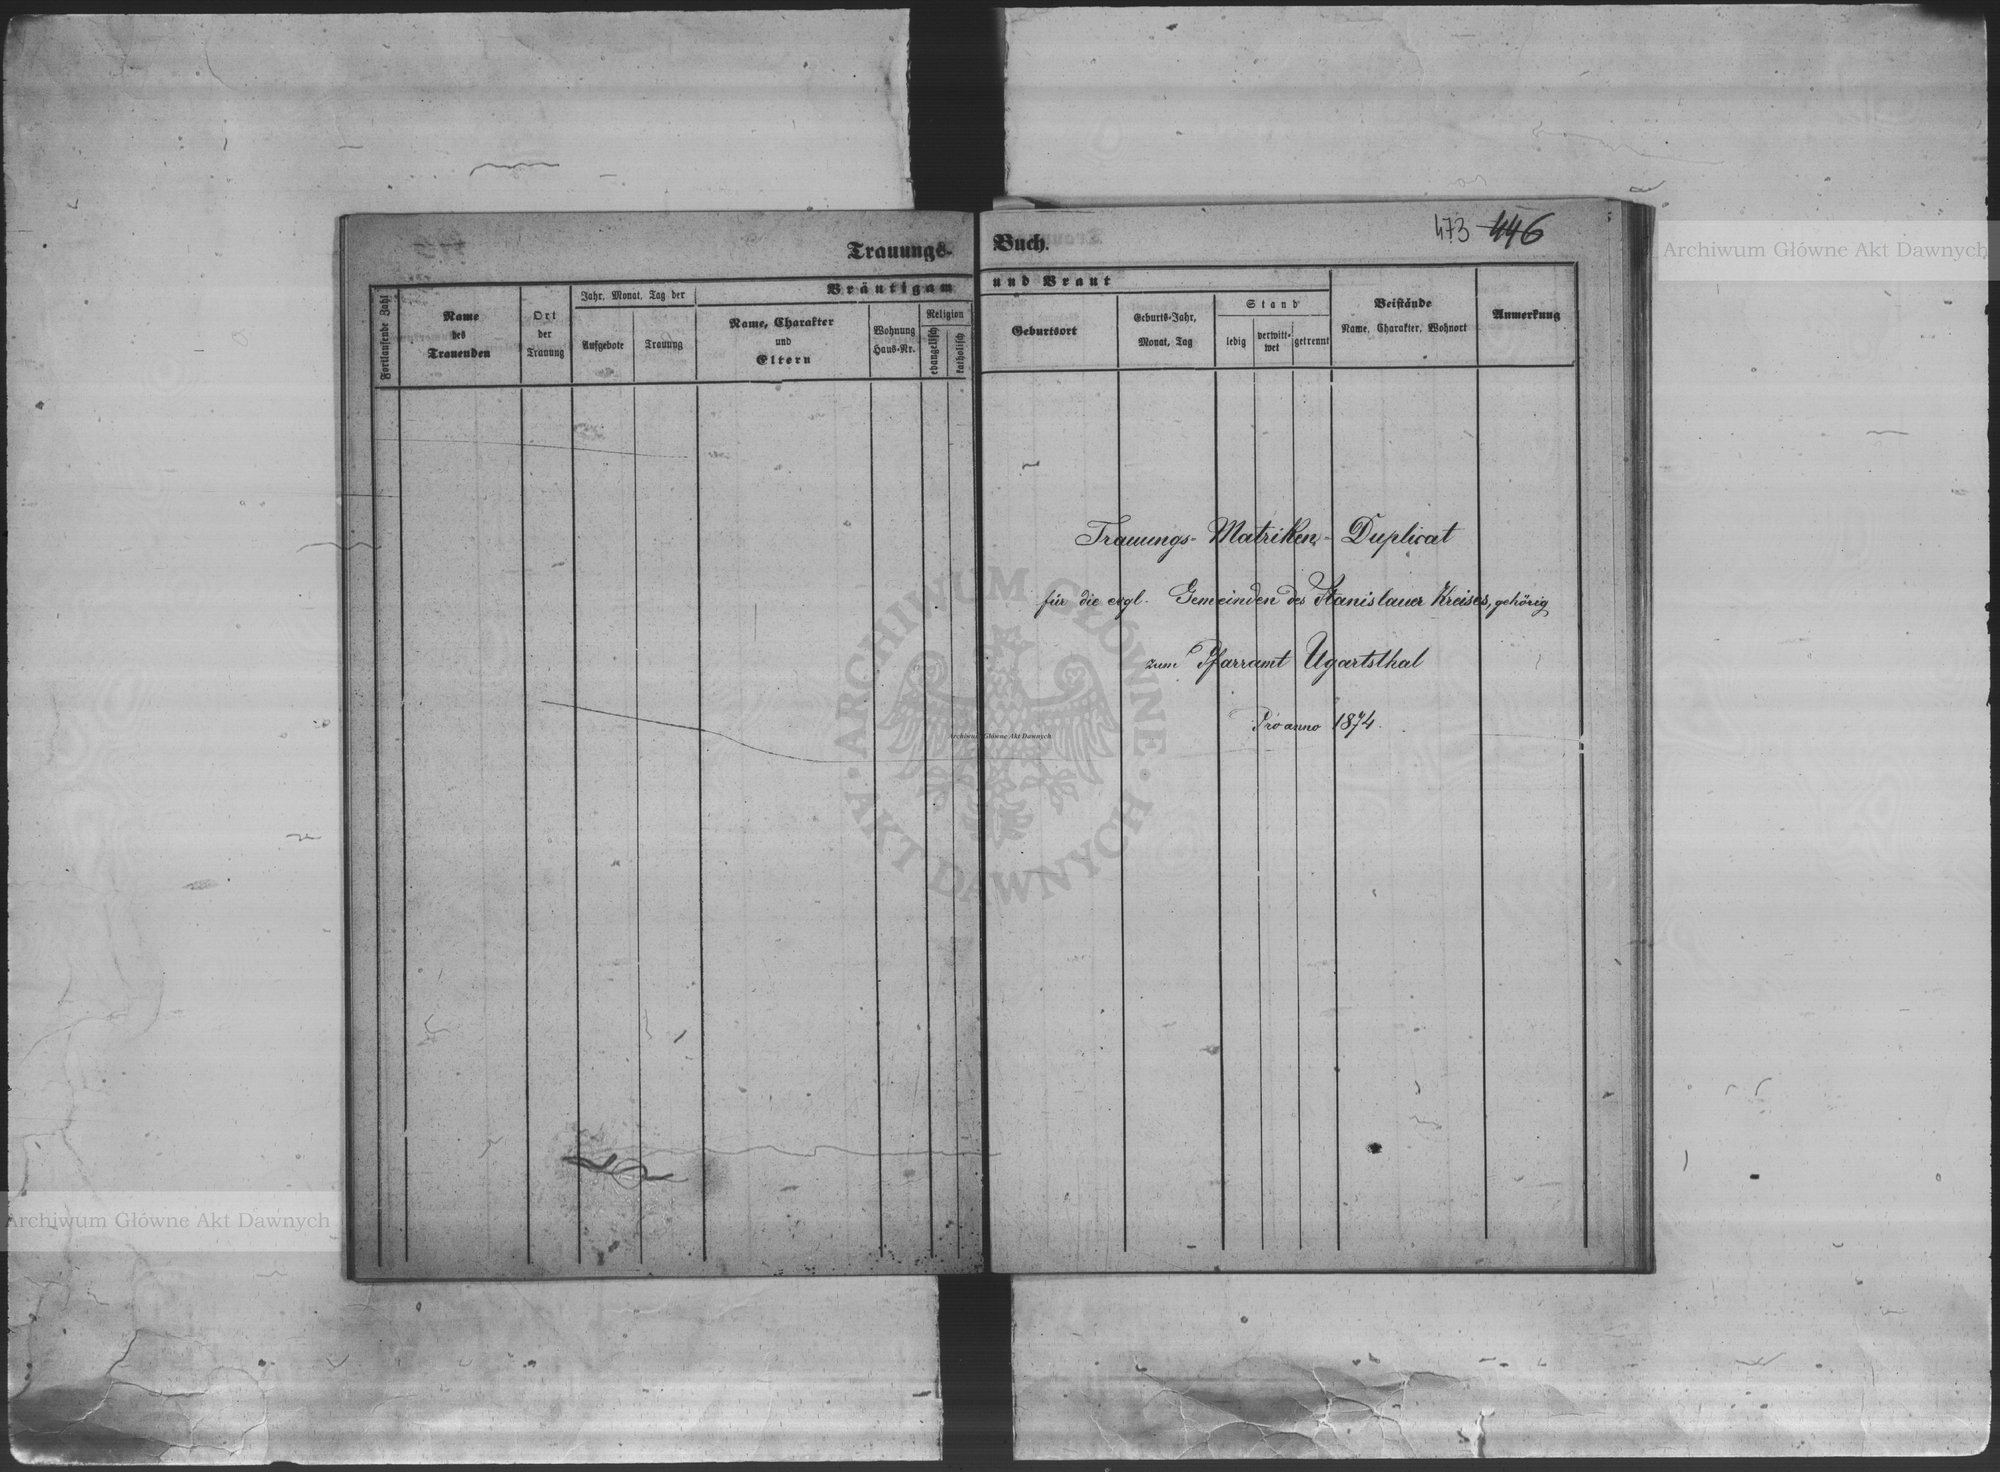 Trauungs-
Buch.
473 446
Bräutigam
und Braut
Fortlaufende Zahl
Name
des
Trauenden
Ort
der
Trauung
Jahr, Monat, Tag der
Aufgebote
Trauung
Name, Charakter
und
Eltern
Wohnung
Haus-Nr.
Religion
evangelisch
katholisch
Geburtsort
Geburts-Jahr,
Monat, Tag
Stand
ledig
verwitt-
wet
getrennt
Beistände
Name, Charakter, Wohnort
Anmerkung
Trauungs-Matriken-Duplicat
für die evgl. Gemeinden des Stanislauer Kreises, gehörig
zum Pfarramt Ugartsthal
Pro anno 1874.
Archiwum Główne Akt Dawnych
Archiwum Główne Akt Dawnych
Archiwum Główne Akt Dawnych
ARCHIWUM GŁÓWNE
AKT DAWNYCH